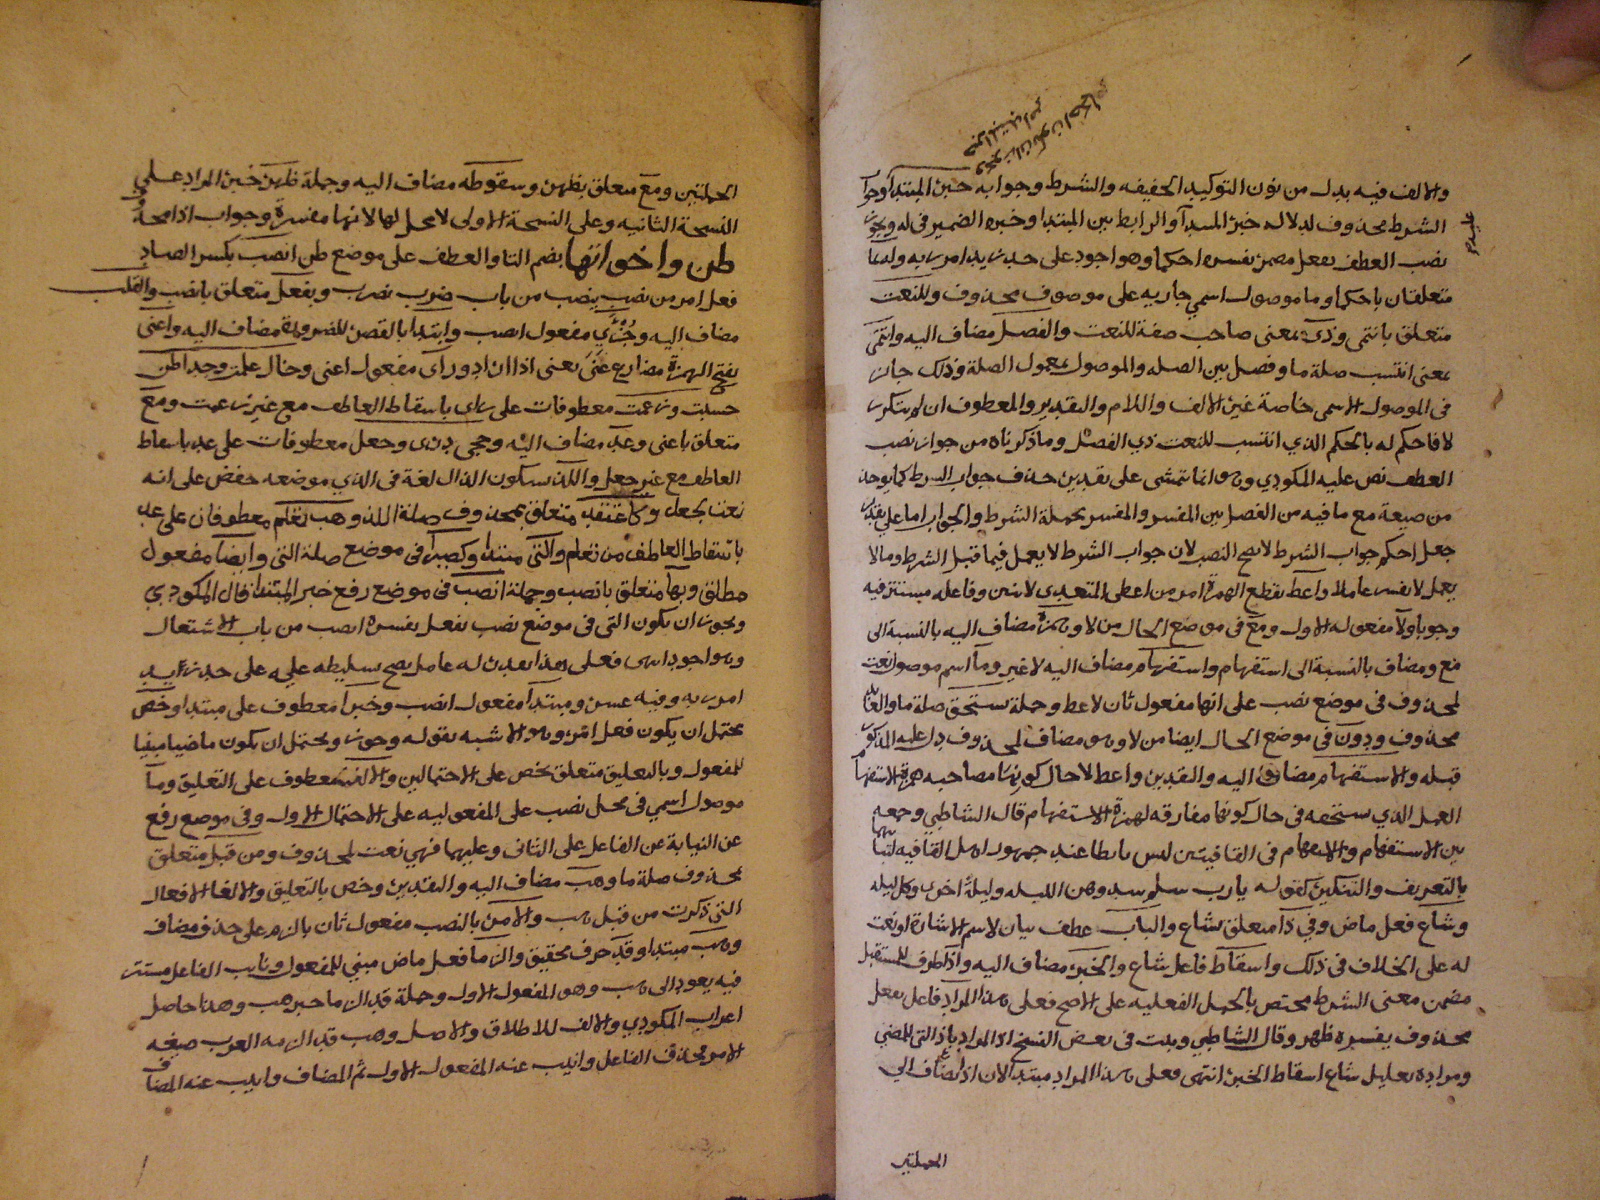 والالف فيه بدل من نون التوكيد الخفيفه والشرط وجوابه خبر المبتدأ وجواب
الشرط محذوف لدلالة خبر المبتدأ والرابط بين المبتدا وخبره الضمير في له ويجوز
نصب العطف بفعل مضمر يفسره احكما وهو اجود على حد زيدا امرر به وله بما
متعلقان باحكما وما موصول اسمي جاريه على موصوف محذوف وللنعت
متعلق بانتمى وذي بمعنى صاحب صفة للنعت والفصل مضاف اليه وانتمى
بمعنى انتسب صلة ما وفصل بين الصله والموصول بمعمول الصلة وذلك جائز
في الموصول الاسمي خاصة غير الالف واللام والتقدير والمعطوف ان لم يتكرر
لا فاحكم له بالحكم الذي انتسب للنعت ذي الفصل وما ذكرناه من جواز نصب
العطف نص عليه المكودي وهو انما يتمشى على تقدير حذف جواب الشرط كما يوخذ
من صيغة مع ما فيه من الفصل بين المفسر والمفسر بجملة الشرط والجواب اما على تقدير
جعل احكم جواب الشرط لا يصح النصب لان جواب الشرط لا يعمل فيما قبل الشرط وما لا
يعمل لا يفسر عاملا واعط بقطع الهمزة امر من اعطى المتعدي لاثنين وفاعله مستتر فيه
وجوبا ولا مفعوله الاول ومع في موضع الحال من لا وهمزة مضاف اليه بالنسبة الى
مع ومضاف بالنسبة الى استفهام واستفهام مضاف اليه لا غير وما اسم موصول نعت
لمحذوف في موضع نصب على انها مفعول ثان لاعط وجملة تستحق صلة ما والعائد
محذوف ودون في موضع الحال ايضا من لا وهو مضاف لمحذوف دل عليه المذكور
قبله والاستفهام مضاف اليه والتقدير واعط لا حال كونها مصاحبه همزة الاستفهام
العمل الذي تستحقه في حال كونها مفارقه لهمزة الاستفهام قال الشاطبي وجمعه
بين الاستفهام والاستفهام في القافيتين ليس بايطا عند جمهور اهل القافيه لتباينهما
بالتعريف والتنكير كقوله يا رب سلم سدوهن الليله وليلة اخرى وكل ليله
وشاع فعل ماض وفي ذا متعلق بشاع والباب عطف بيان لاسم الاشارة او نعت
له على الخلاف في ذلك واسقاط فاعل شاع والخبر مضاف اليه واذا ظرف للمستقبل
مضمن معنى الشرط مختص بالجمل الفعليه على الاصح فعلى هذا المراد فاعل بفعل
محذوف يفسره ظهر وقال الشاطبي وثبت في بعض النسخ اذ المراد باذ التي للمضي
ومراده تعليل شاع اسقاط الخبر انتهى فعلى هذا المراد مبتدا لان اذ تضاف الى
الجملتين
الجملتين ومع متعلق بظهر وسقوطه مضاف اليه وجملة ظهر خبر المراد على
النسخة الثانيه وعلى النسخة الاولى لا محل لها لانها مفسرة وجواب اذا محذوف
ظن واخواتها بضم التا والعطف على موضع ظن انصب بكسر الصاد
فعل امر من نصب ينصب من باب ضرب يضرب وبفعل متعلق بانصب والقلب
مضاف اليه وجزئي مفعول انصب وابتدا بالقصر للضرورة مضاف اليه واعني
بفتح الهمزة مضارع عنى يعني اذا اراد وراى مفعول اعني وخال علمت وجدا ظن
حسبت وزعمت معطوفات على راى باسقاط العاطف مع غير زعمت ومع
متعلق باعني وعد مضاف اليه وحجى درى وجعل معطوفات على عد باسقاط
العاطف مع غير جعل واللذ بسكون الذال لغة في الذي موضعه خفض على انه
نعت لجعل وكاعتقد متعلق بمحذوف صلة اللذ وهب تعلم معطوفان على عد
باسقاط العاطف من تعلم والتي مبتدا وكصيرا في موضع صلة التي وايضا مفعول
مطلق وبها متعلق بانصب وجملة انصب في موضع رفع خبر المبتدا قال المكودي
ويجوز ان يكون التي في موضع نصب بفعل يفسره انصب من باب الاشتغال
وهو اجود انتهى فعلى هذا يقدر له عامل يصح تسليطه عليه على حد زيدا
امرر به وفيه عسر ومبتدا مفعول انصب وخبرا معطوف على مبتدا وخص
يحتمل ان يكون فعل امر وهو الاشبه بقوله وجوز ويحتمل ان يكون ماضيا مبنيا
للمفعول وبالتعليق متعلق بخص على الاحتمالين والالغا معطوف على التعليق وما
موصول اسمي في محل نصب على المفعوليه على الاحتمال الاول وفي موضع رفع
عن النيابة عن الفاعل على الثاني وعليهما فهي نعت لمحذوف ومن قبل متعلق
بمحذوف صلة ما وهب مضاف اليه والتقدير وخص بالتعليق والالغا الافعال
التي ذكرت من قبل هب والامر بالنصب مفعول ثان بالزم على حذف مضاف
وهب مبتدا وقد حرف تحقيق والزما فعل ماض مبني للمفعول ونايب الفاعل مستتر
فيه يعود الى هب وهو المفعول الاول وجملة قد الزما خبر هب وهذا حاصل
اعراب المكودي والالف للاطلاق والاصل وهب قد الزمه العرب صيغه
الامر فحذف الفاعل وانيب عنه المفعول الاول ثم المضاف وانيب عنه المضاف